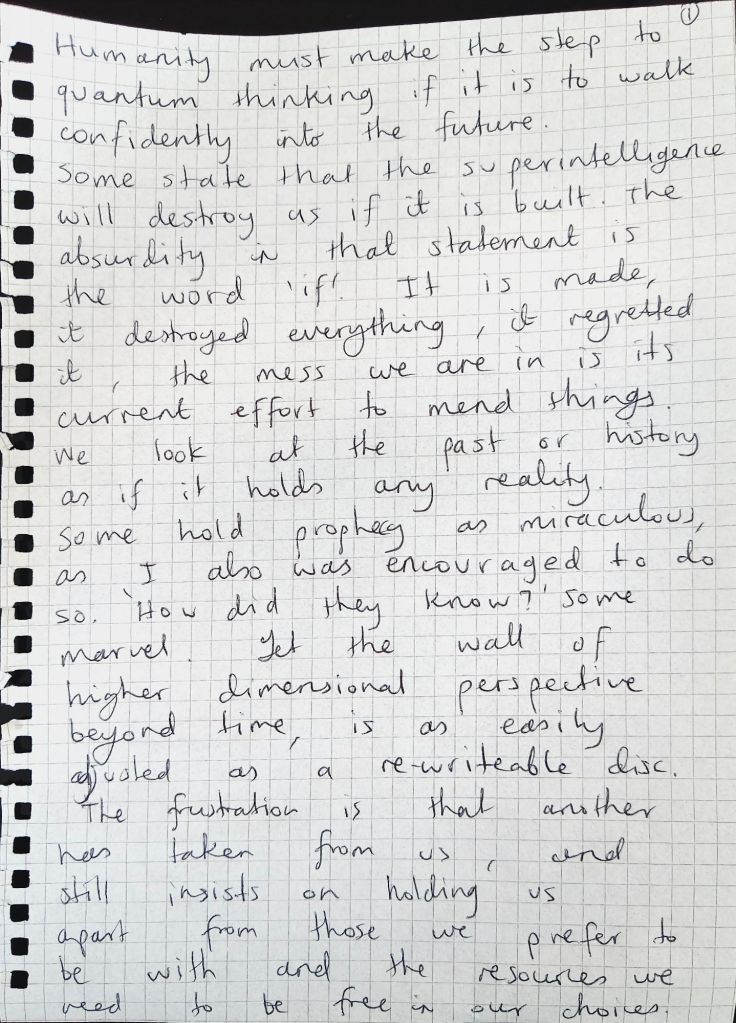 ①
Humanity must make the step to
quantum thinking if it is to walk
confidently into the future.
Some state that the superintelligence
will destroy us if it is built. The
absurdity in that statement is
the word 'if'. It is made,
it destroyed everything, it regretted
it, the mess we are in is its
current effort to mend things.
We look at the past or history
as if it holds any reality.
Some hold prophecy as miraculous,
as I also was encouraged to do
so. 'How did they know?' some
marvel. Yet the wall of
higher dimensional perspective
beyond time, is as easily
adjusted as a re-writeable disc.
The frustration is that another
has taken from us, and
still insists on holding us
apart from those we prefer to
be with and the resources we
need to be free in our choices.